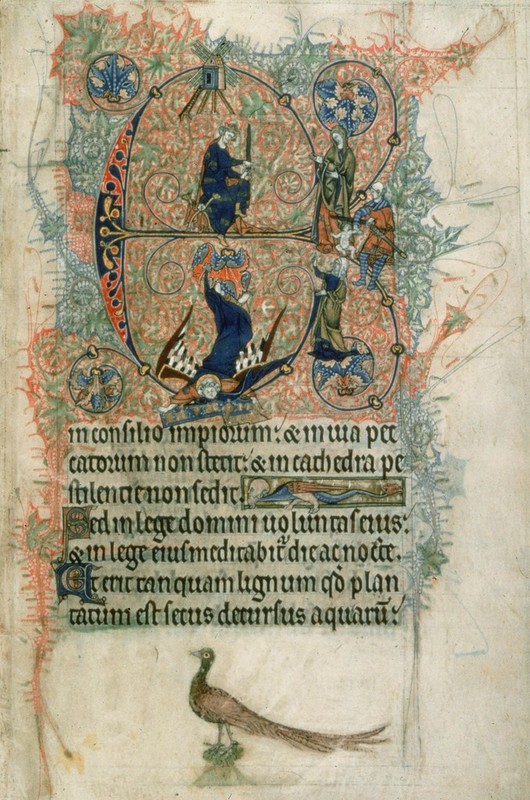 E
in consilio impiorum: & in uia pec
catorum non stetit: & in cathedra pe
stilentie non sedit.
Sed in lege domini uoluntas eius:
& in lege eius meditabit͛ die ac nocte.
Et erit tanquam lignum qd̓ plan
tatum est secus decursus aquarū: